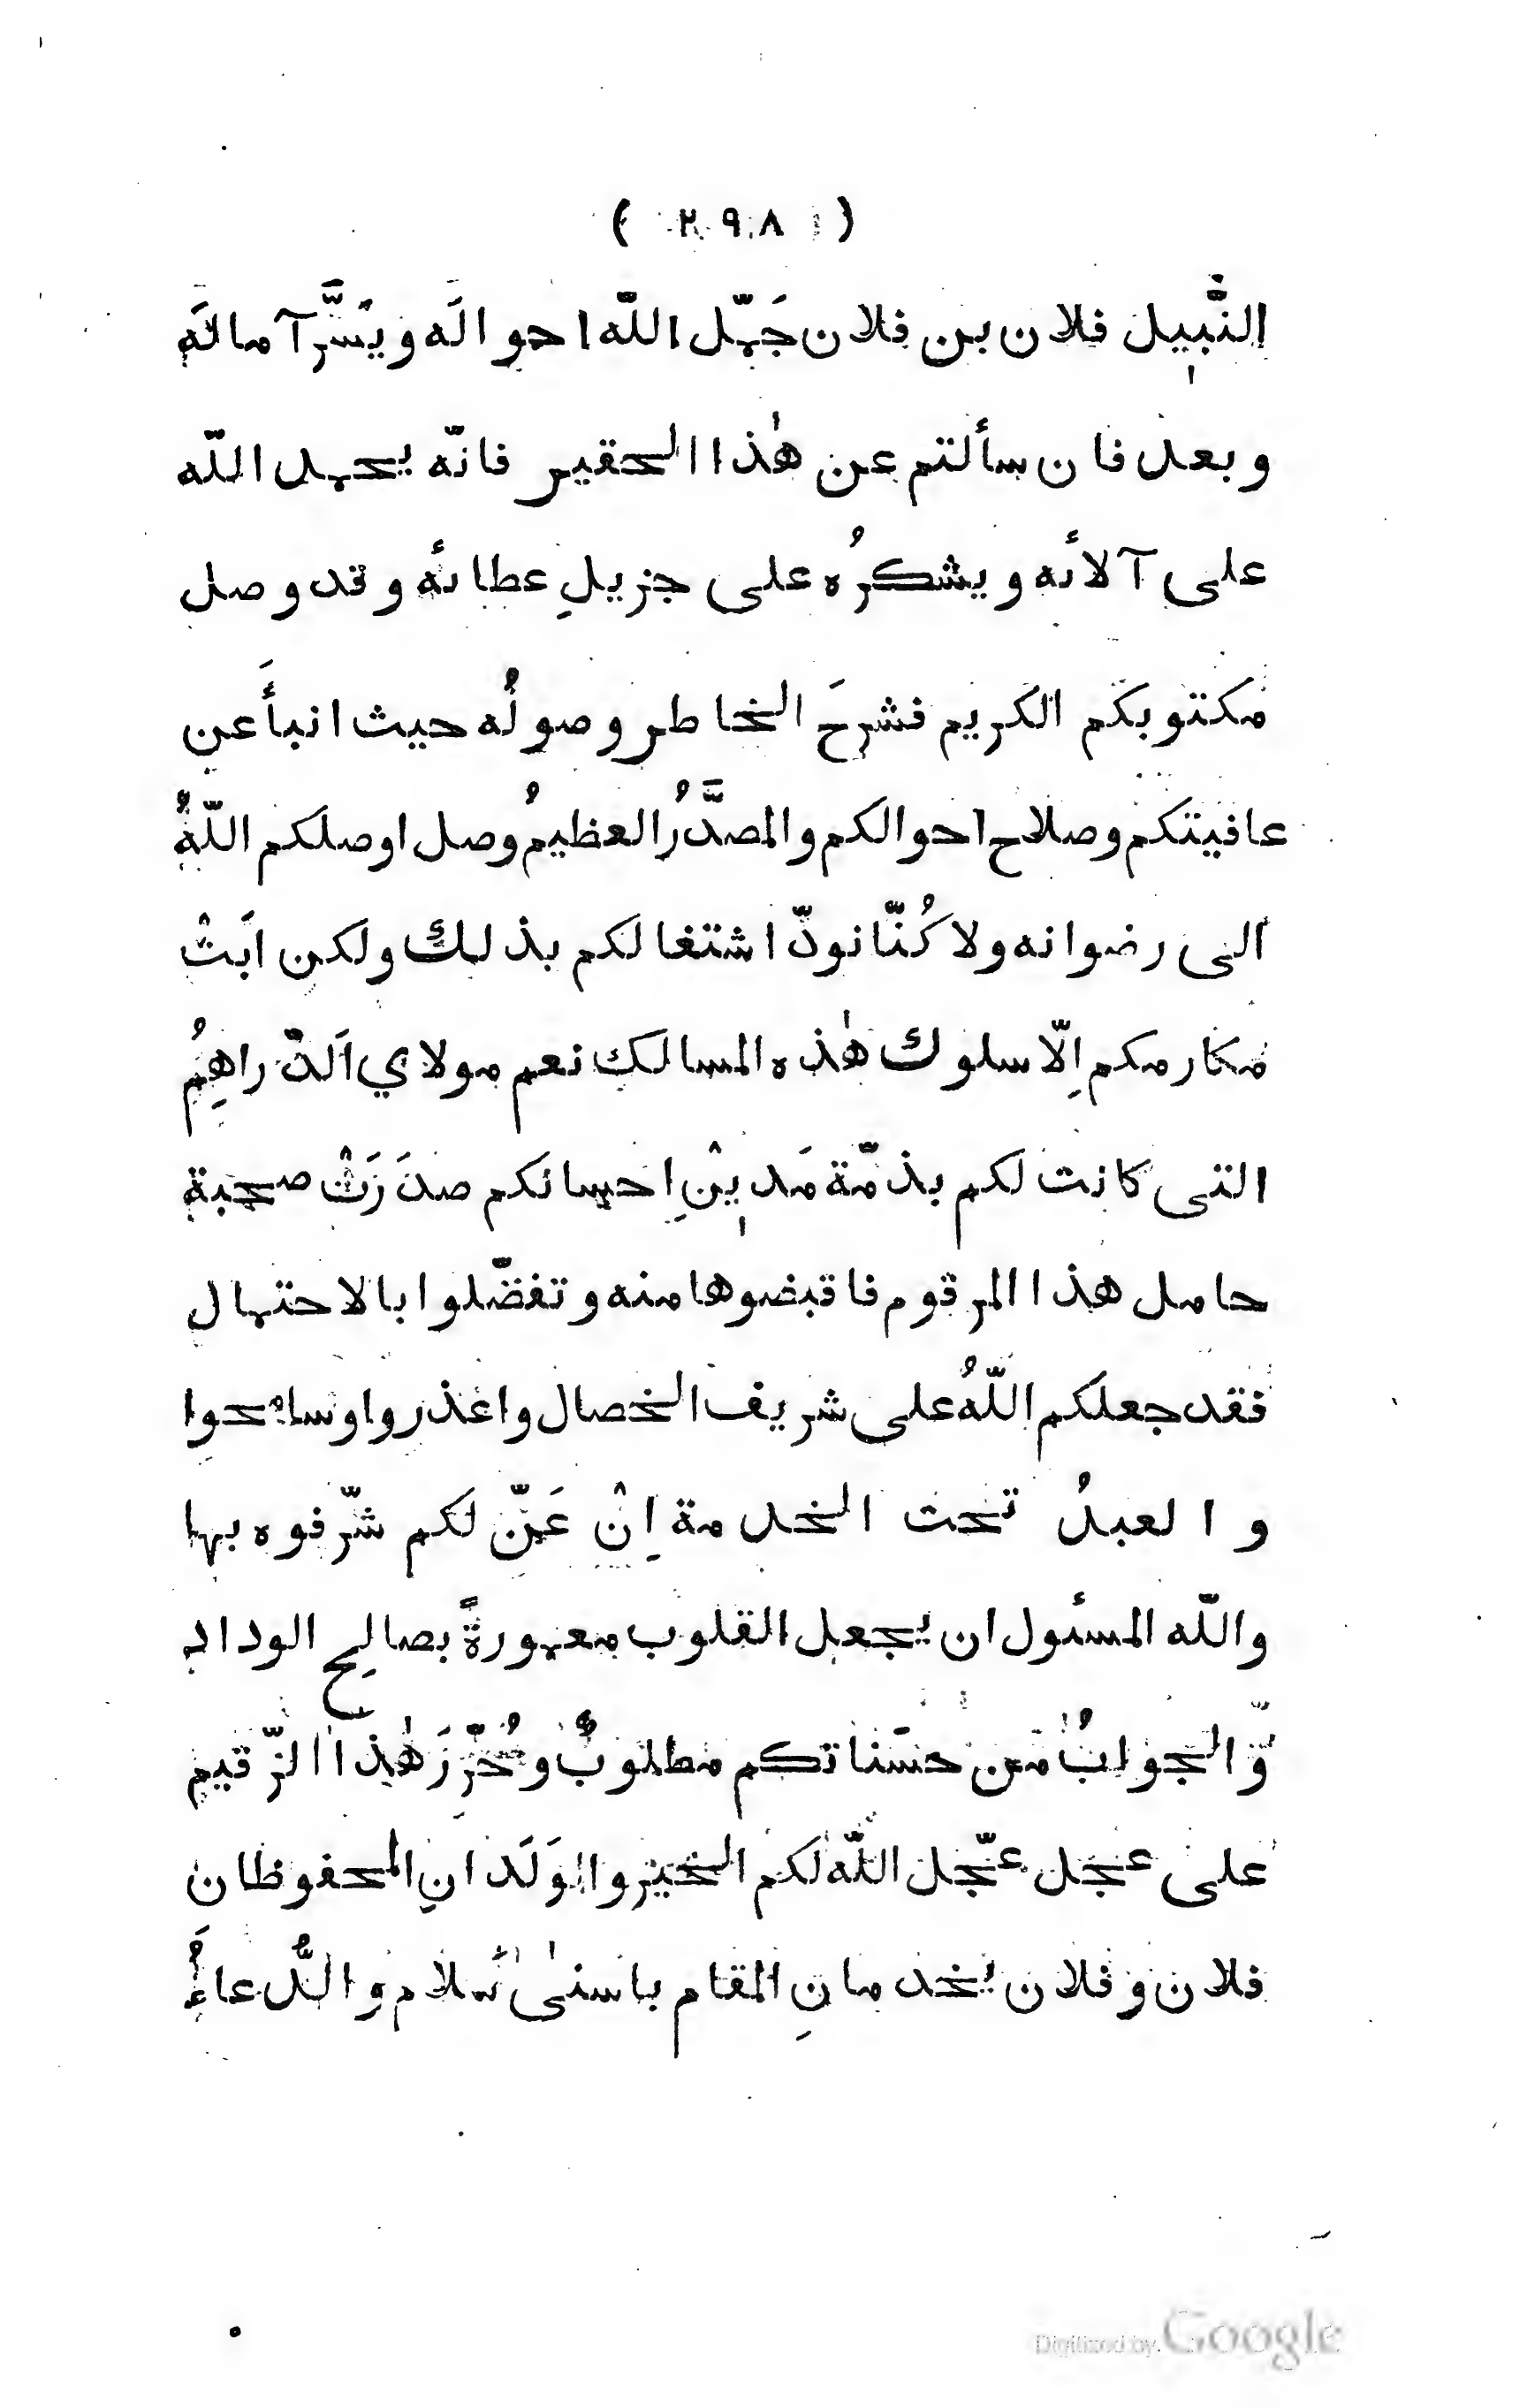 ( ٢٩٨ )
النّبيل فلان بن فلان جَمّل اللّه احوالَه ويَسَّر آمالَه
وبعد فان سألتم عن هٰذا الحقير فانّه يحمد اللّه
على آلائه ويشكرُه على جزيلِ عطائه وقد وصل
مكتوبكم الكريم فشرحَ الخاطر وصولُه حيث انبأَ عن
عافيتكم وصلاح احوالكم والمصدَّرُ العظيمُ وصل اوصلكم اللّهُ
الى رضوانه ولا كُنّا نودّ اشتغالكم بذلك ولكن اَبَتْ
مكارمكم اِلّا سلوك هٰذه المسالك نعم مولاي اَلدّراهِمُ
التى كانت لكم بذمّة مَديْنِ احسانكم صدَرَتْ صحبة
حامل هذا المرقوم فاقبضوها منه وتفضّلوا بالاحتمال
فقد جعلكم اللّهُ على شريف الخصال واعذروا وسامحوا
والعبدُ تحت الخدمة اِنْ عَنّ لكم شرّفوه بها
واللّه المسئول ان يجعل القلوب معمورةً بصالِح الوداد
وّالجوابُ من حسَناتكم مطلوبٌ وحُرِّرَ هٰذا الرّقيم
على عجل عجّل اللّه لكم الخير والوَلَدانِ المحفوظان
فلان وفلان يخدمانِ المقام باسنىٰ سَلام والدُّعاءُ
Digitized by Google